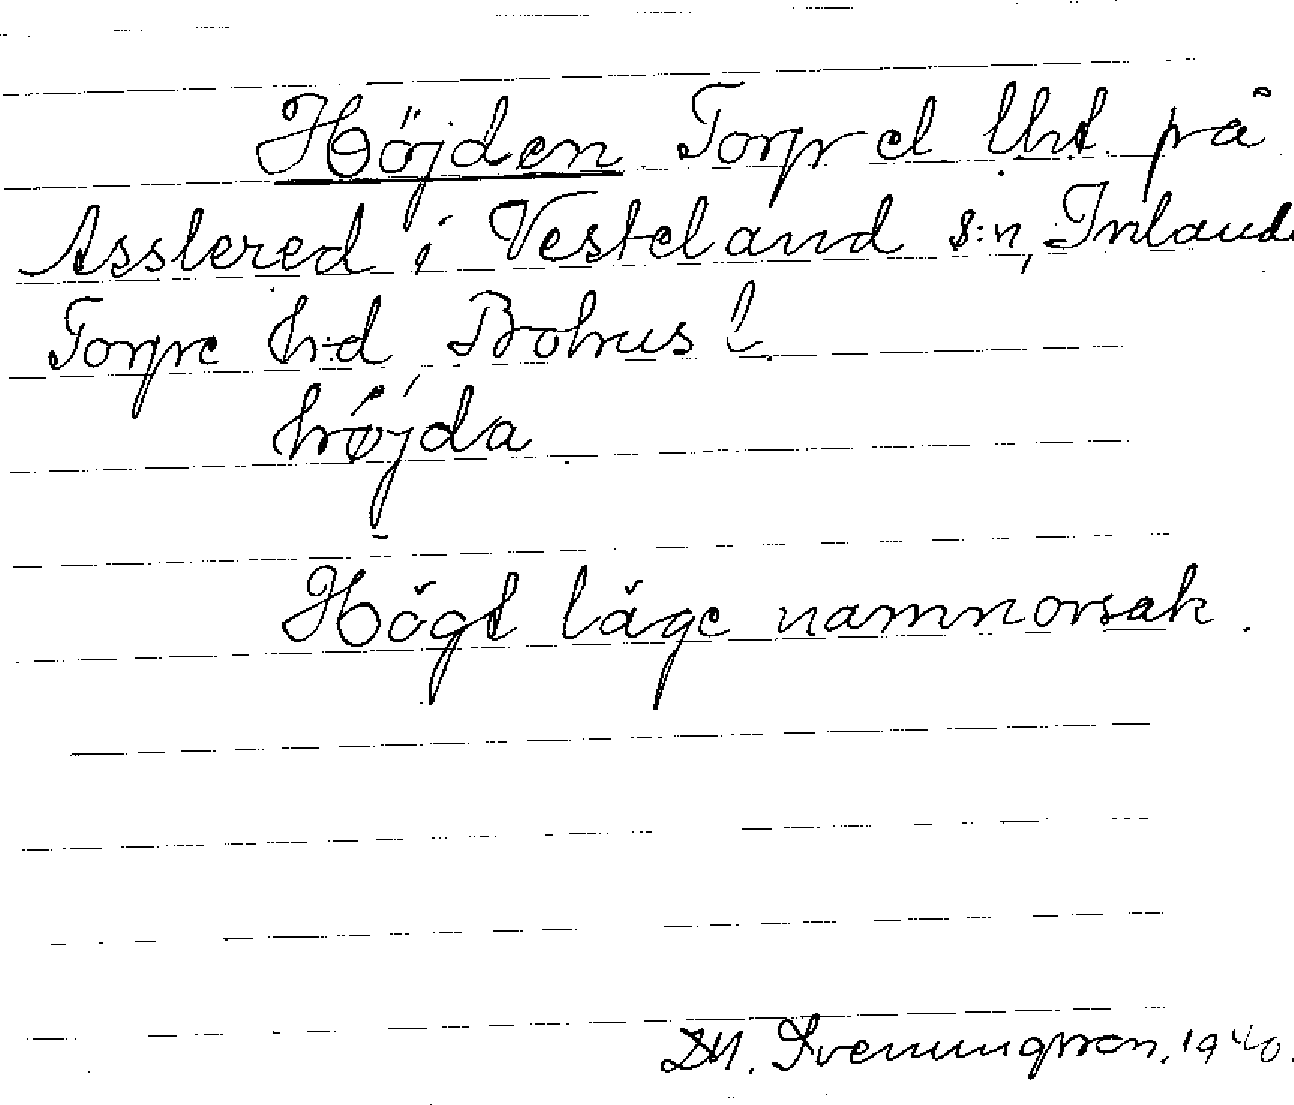 Höjden Torp el lht på
Asslered i Vesteland s:n, Inland
Torpe h:d Bohus l.
höjda
Högt läge namnorsak.
Sveningsson, 1940.